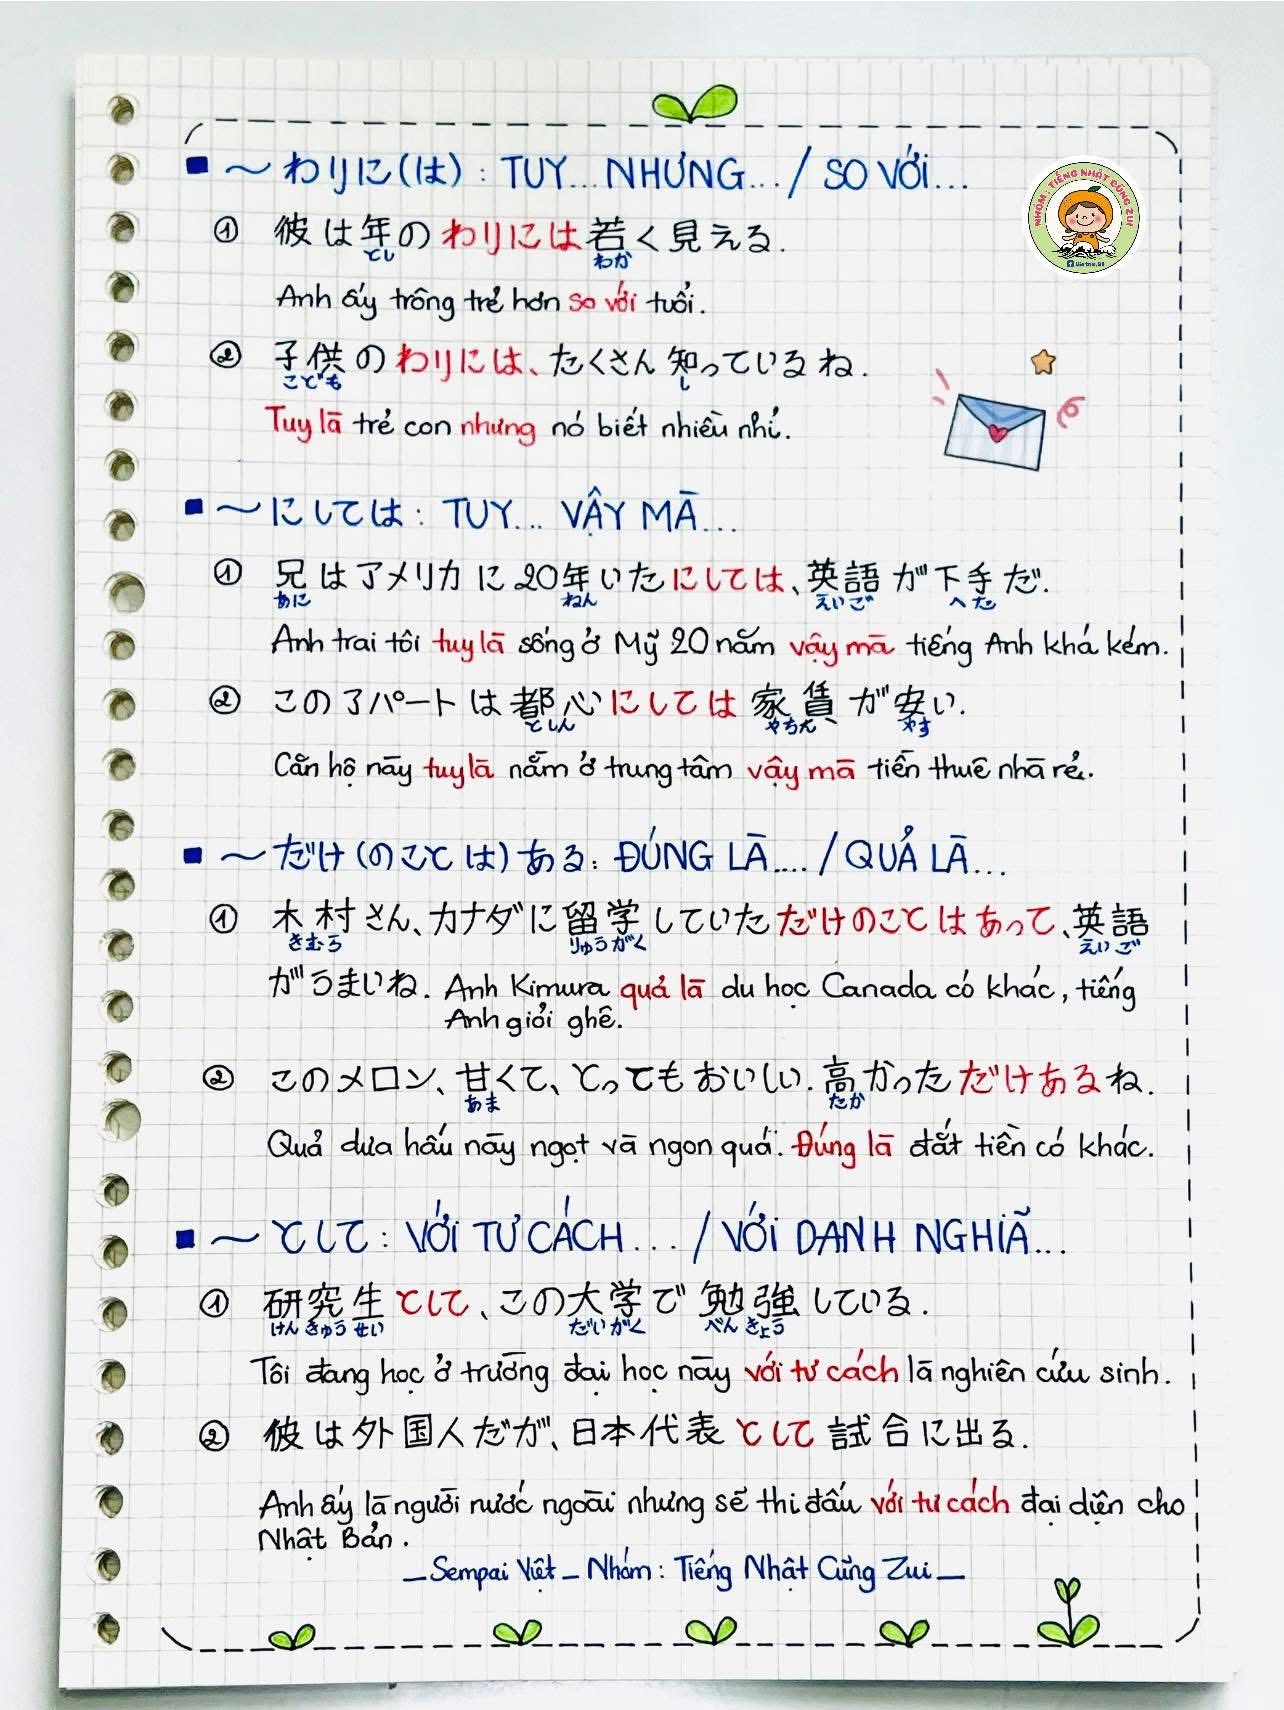 ■ ～わりに(は) : TUY... NHƯNG... / SO VỚI...
NHÓM : TIẾNG NHẬT CÙNG ZUI
① 彼は年のわりには若く見える.
とし わか
Anh ấy trông trẻ hơn so với tuổi.
② 子供のわりには、たくさん知っているね.
こども し
Tuy là trẻ con nhưng nó biết nhiều nhỉ.
■ ～にしては : TUY... VẬY MÀ...
① 兄はアメリカに20年いたにしては、英語が下手だ.
あに ねん えいご へた
Anh trai tôi tuy là sống ở Mỹ 20 năm vậy mà tiếng Anh khá kém.
② このアパートは都心にしては家賃が安い.
としん やちん やす
Căn hộ này tuy là nằm ở trung tâm vậy mà tiền thuê nhà rẻ.
■ ～だけ(のことは)ある: ĐÚNG LÀ.... / QUẢ LÀ...
① 木村さん、カナダに留学していただけのことはあって、英語
きむら りゅうがく えいご
がうまいね. Anh Kimura quả là du học Canada có khác, tiếng
Anh giỏi ghê.
② このメロン、甘くて、とってもおいしい. 高かっただけあるね.
あま たか
Quả dưa hấu này ngọt và ngon quá. Đúng là đắt tiền có khác.
■ ～として : VỚI TƯ CÁCH... / VỚI DANH NGHĨA...
① 研究生として、この大学で勉強している.
けんきゅうせい だいがく べんきょう
Tôi đang học ở trường đại học này với tư cách là nghiên cứu sinh.
② 彼は外国人だが、日本代表として試合に出る.
Anh ấy là người nước ngoài nhưng sẽ thi đấu với tư cách đại diện cho
Nhật Bản.
_Sempai Việt_ Nhóm : Tiếng Nhật Cùng Zui_